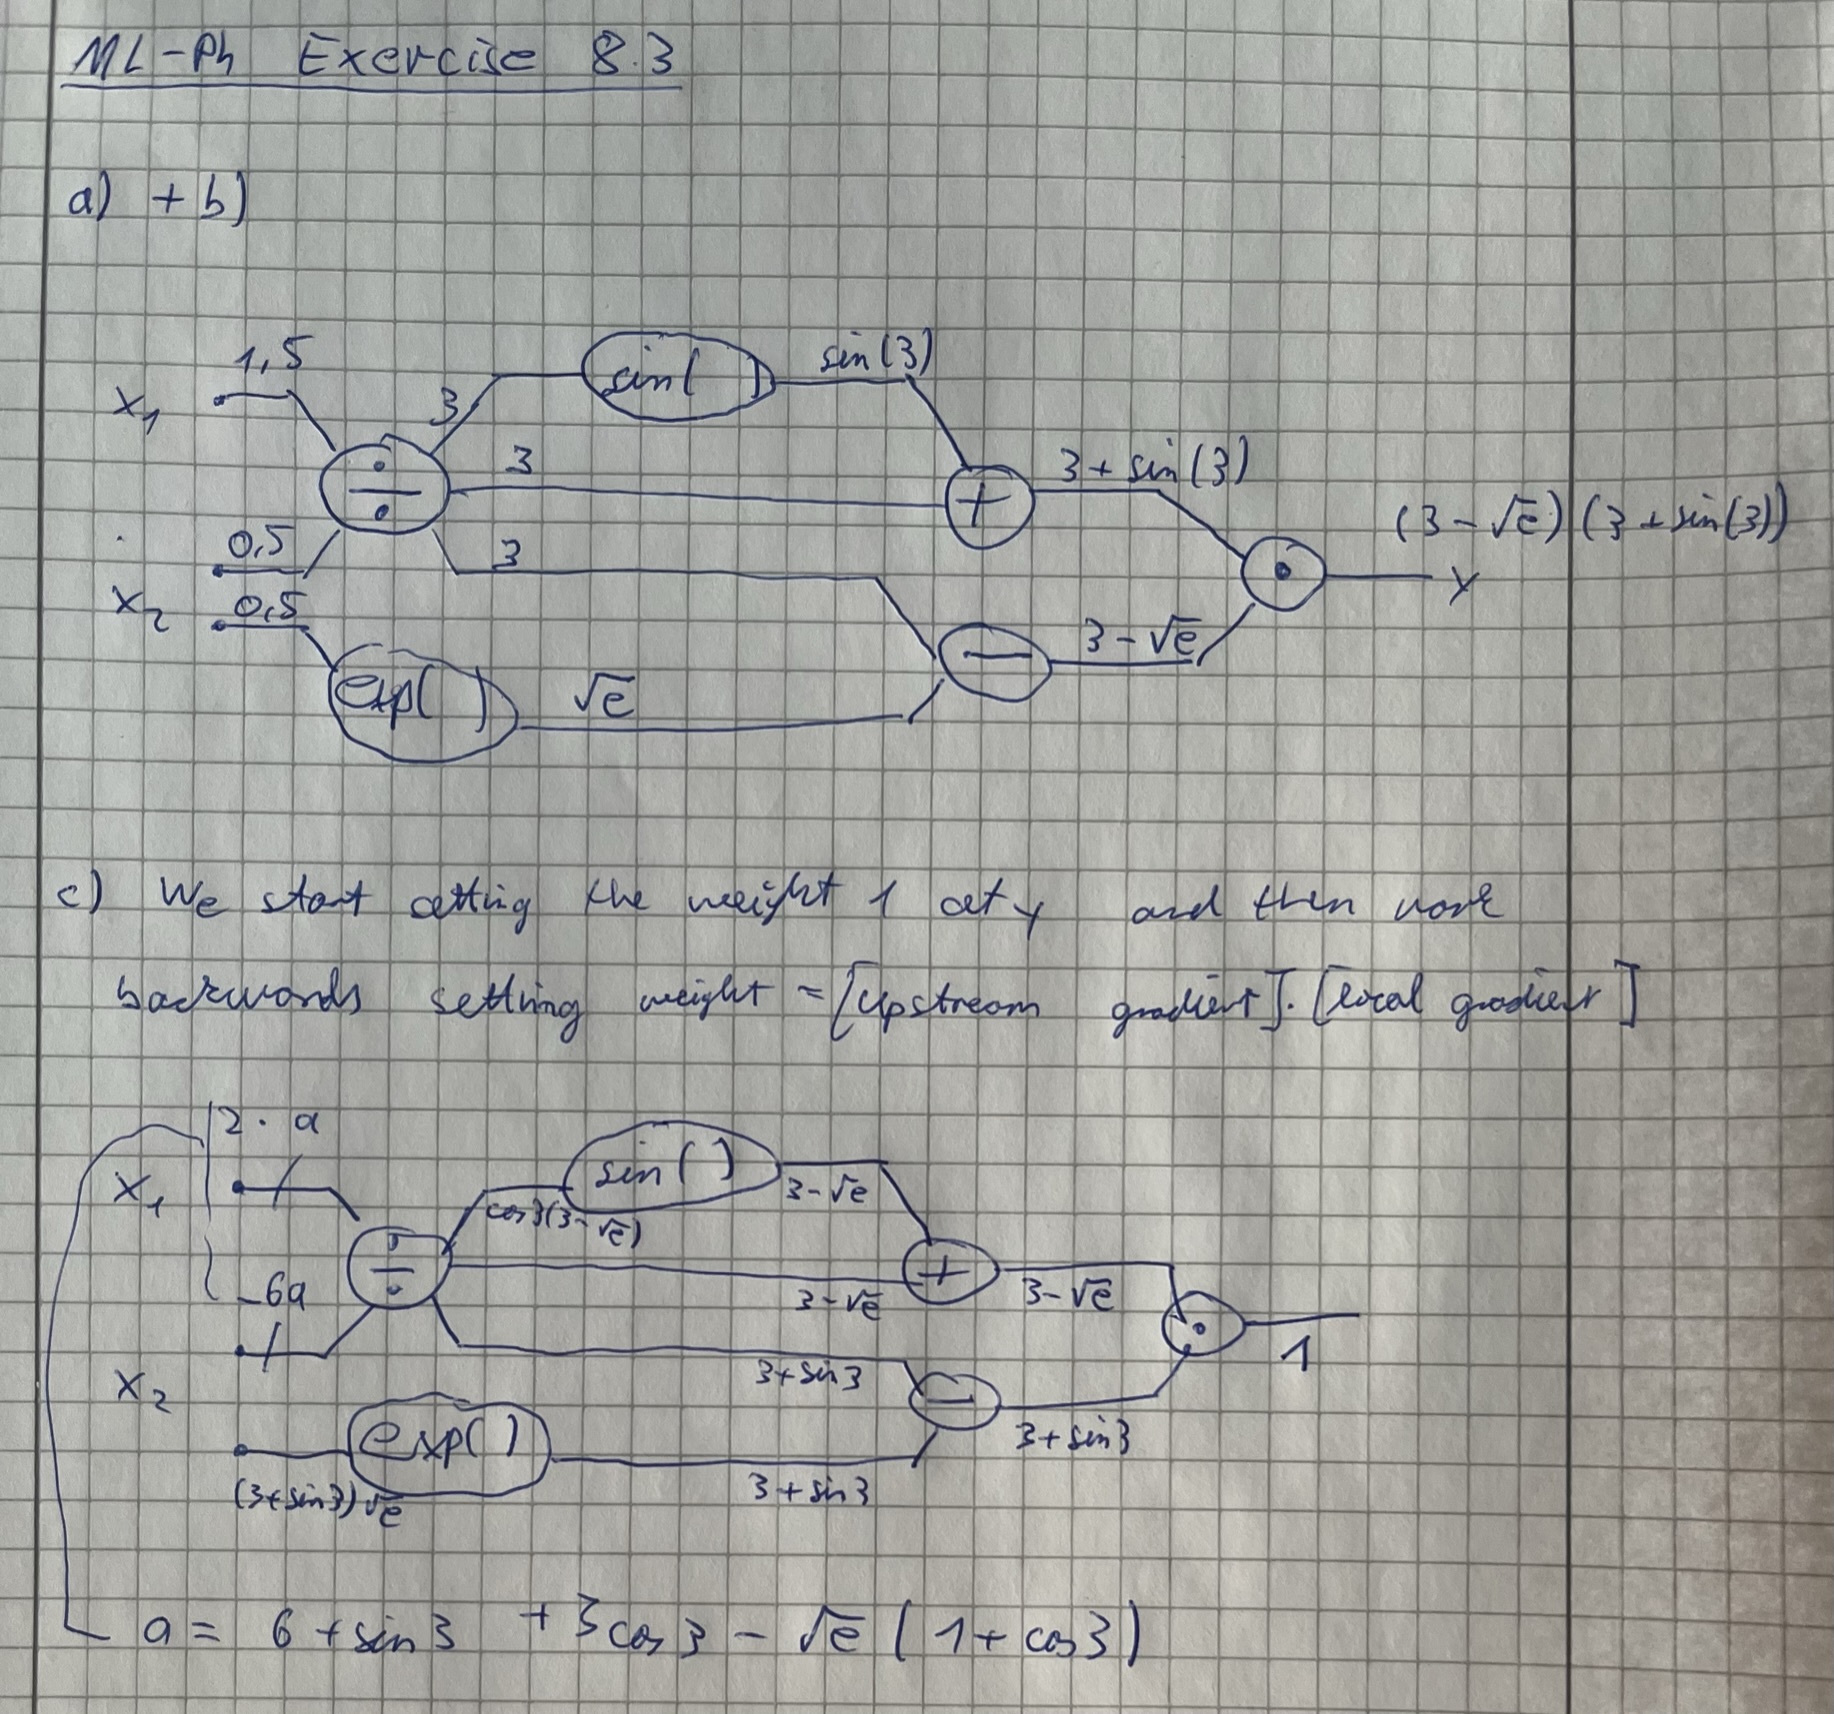 ML-Ph Exercise 8.3
a) + b)
1,5
x₁
3
sin( )
sin(3)
÷
3
+
3 + sin(3)
(3 - √e) (3 + sin(3))
0,5
3
·
y
x₂
0,5
exp( )
√e
−
3 - √e
c) We start setting the weight 1 at y and then work
backwards setting weight = [Upstream gradient] · [local gradient]
2 · a
x₁
sin ( )
3 - √e
cos3(3 - √e)
÷
+
3 - √e
3 - √e
-6a
·
1
x₂
3 + sin3
−
3 + sin3
exp( )
(3 + sin3) √e
3 + sin3
a = 6 + sin3 + 3cos3 - √e ( 1 + cos3)